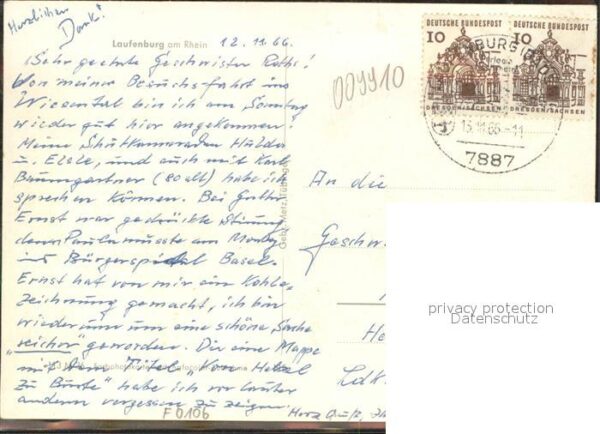 Herzlichen
Dank!
Laufenburg am Rhein 12.11.66.
Sehr geehrte Geschwister Roths!
Von meiner Besuchsfahrt ins
Wiesental bin ich am Sonntag
wieder gut hier angekommen.
Meine Schulkameraden Hulda
u. Elsle, und auch mit Karl
Baumgartner (80 alt) habe ich
sprechen können. Bei
Ernst war gedrückte Stimmung
denn Paula musste am
ins Bürgerspital Basel.
Ernst hat von mir ein Kohle-
zeichnung gemacht, ich bin
wiederum um eine schöne Sache
"reicher" geworden. Die eine Mappe
mit dem Titel "Von Hebel
zu Burte" habe ich vor lauter
andern vergessen zu zeigen
F0106
Herz. Gruß,
009910
DEUTSCHE BUNDESPOST
10
DRESDEN/SACHSEN
DEUTSCHE BUNDESPOST
10
DRESDEN/SACHSEN
13.11.66-11
7887
An die
Geschw.
Ldk.
Gebr. Metz, Tübingen
privacy protection
Datenschutz